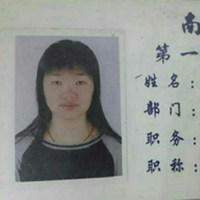 南
第一
姓名：
部门：
职务：
职称：